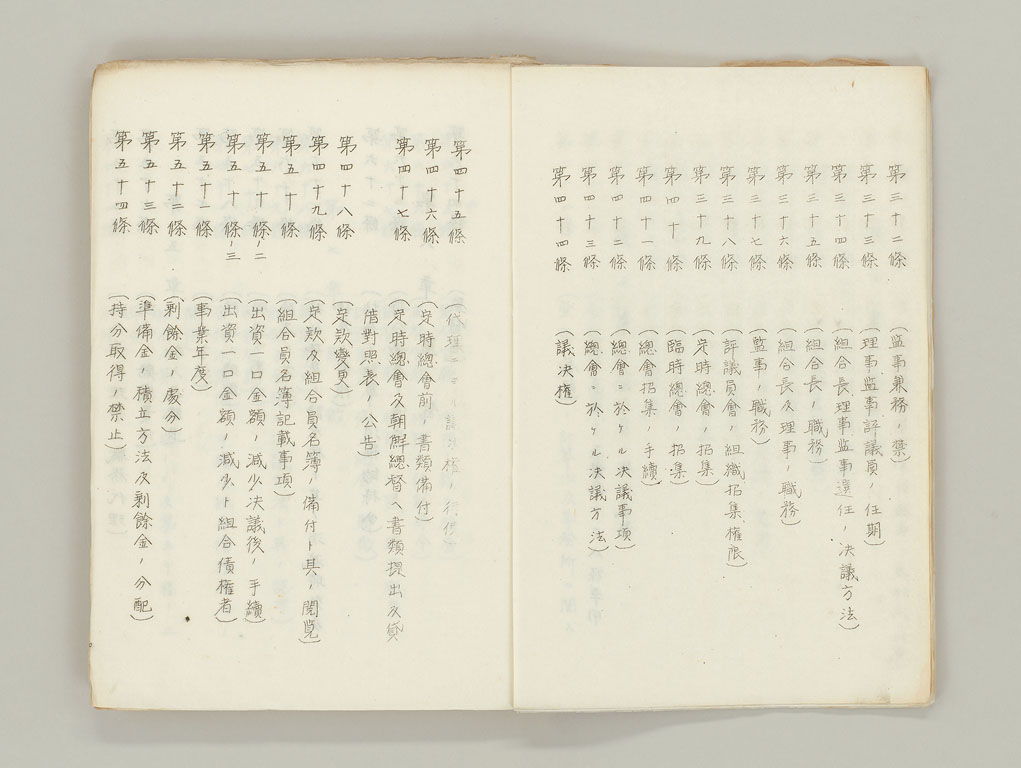 第三十二條 (監事兼務ノ禁)
第三十三條 (理事監事評議員ノ任期)
第三十四條 (組合長理事監事選任ノ決議方法)
第三十五條 (組合長ノ職務)
第三十六條 (組合長及理事ノ職務)
第三十七條 (監事ノ職務)
第三十八條 (評議員會ノ組織招集權限)
第三十九條 (定時總會ノ招集)
第四十條 (臨時總會ノ招集)
第四十一條 (總會招集ノ手續)
第四十二條 (總會ニ於ケル決議事項)
第四十三條 (總會ニ於ケル決議方法)
第四十四條 (議決權)
第四十五條 (代理ニ 議決權ノ行使)
第四十六條 (定時總會前ノ書類備付)
第四十七條 (定時總會及朝鮮總督ヘ書類提出及貸
借對照表ノ公告)
第四十八條 (定款變更)
第四十九條 (定款及組合員名簿ノ備付ト其ノ閲覧)
第五十條 (組合員名簿記載事項)
第五十條ノ二 (出資一口金額ノ減少決議後ノ手續)
第五十條ノ三 (出資一口金額ノ減少ト組合債權者)
第五十一條 (事業年度)
第五十二條 (剰餘金ノ處分)
第五十三條 (準備金ノ積立方法及剰餘金ノ分配)
第五十四條 (持分取得ノ禁止)